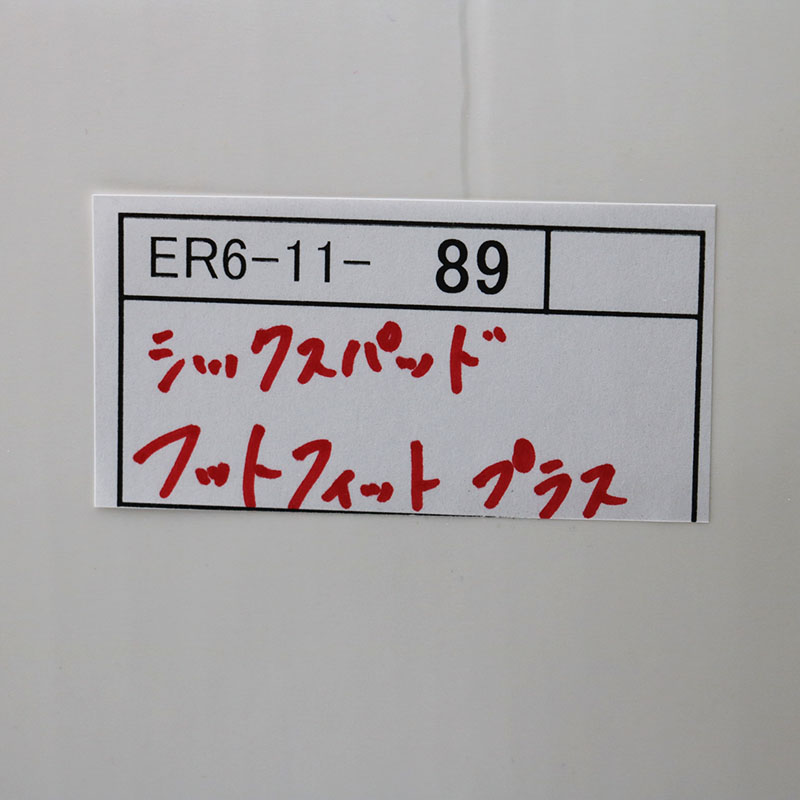 ER6-11- 89
シックスパッド
フットフィット プラス